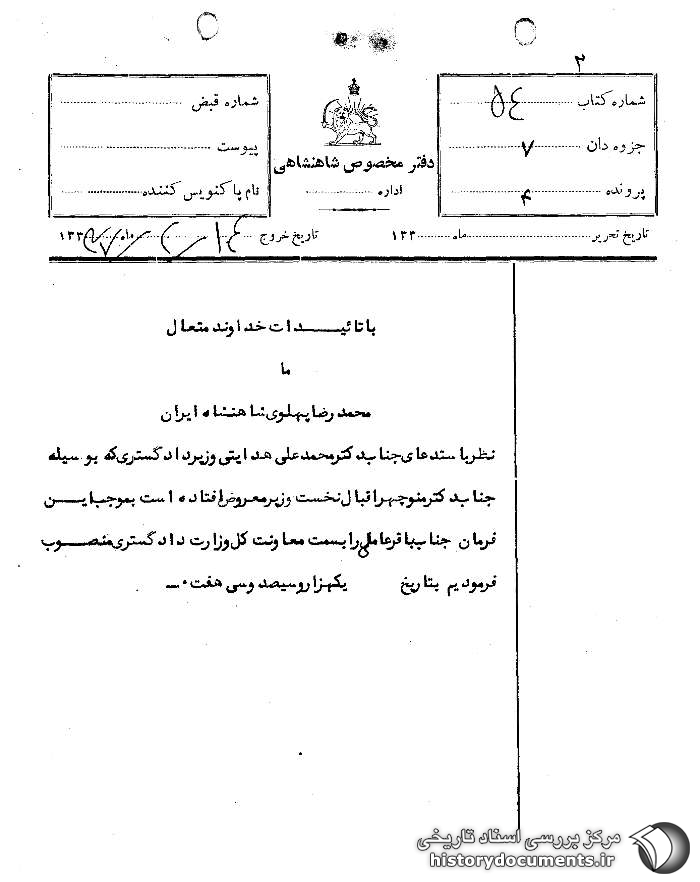 ۲
شماره کتاب ۵٤
جزوه دان ۷
پرونده ۴
دفتر مخصوص شاهنشاهی
اداره
شماره قبض
پیوست
نام پاکنویس کننده
تاریخ تحریر ماه ۱۳۳
تاریخ خروج ماه ۱۳۳
با تائیدات خداوند متعال
ما
محمد رضا پهلوی شاهنشاه ایران
نظر باستدعای جناب دکتر محمد علی هدایتی وزیر دادگستری که بوسیله
جناب دکتر منوچهر اقبال نخست وزیر معروض افتاده است بموجب این
فرمان جناب باقر عاملی را بسمت معاونت کل وزارت دادگستری منصوب
فرمودیم بتاریخ یکهزار و سیصد و سی هفت ۰ــ
مرکز بررسی اسناد تاریخی
historydocuments.ir